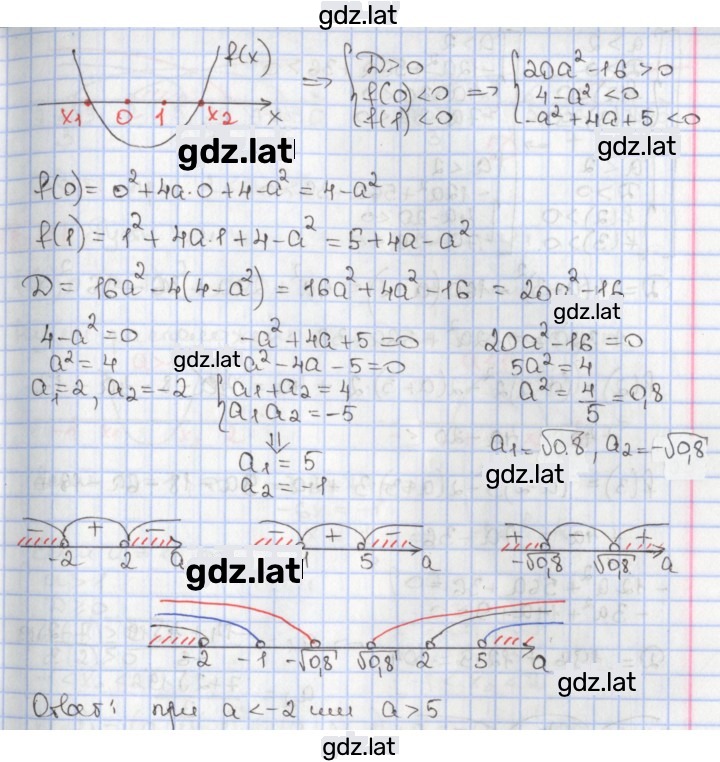 gdz.lat
f(x)
x₁ 0 1 x₂ x
=> { D>0
f(0)<0
f(1)<0
=> { 20a²-16>0
4-a²<0
-a²+4a+5<0
gdz.lat
gdz.lat
f(0)=0²+4a·0+4-a²=4-a²
f(1)=1²+4a·1+4-a²=5+4a-a²
D=16a²-4(4-a²)=16a²+4a²-16=20a²-16
gdz.lat
4-a²=0
a²=4
a₁=2, a₂=-2
gdz.lat
-a²+4a+5=0
a²-4a-5=0
{ a₁+a₂=4
a₁a₂=-5
⇓
a₁=5
a₂=-1
20a²-16=0
5a²=4
a²=4/5=0,8
a₁=√0.8, a₂=-√0,8
gdz.lat
- + -
-2 2 a
- + -
-1 5 a
+ - +
-√0,8 √0,8 a
gdz.lat
-2 -1 -√0,8 √0,8 2 5 a
gdz.lat
Ответ: при a<-2 или a>5
gdz.lat